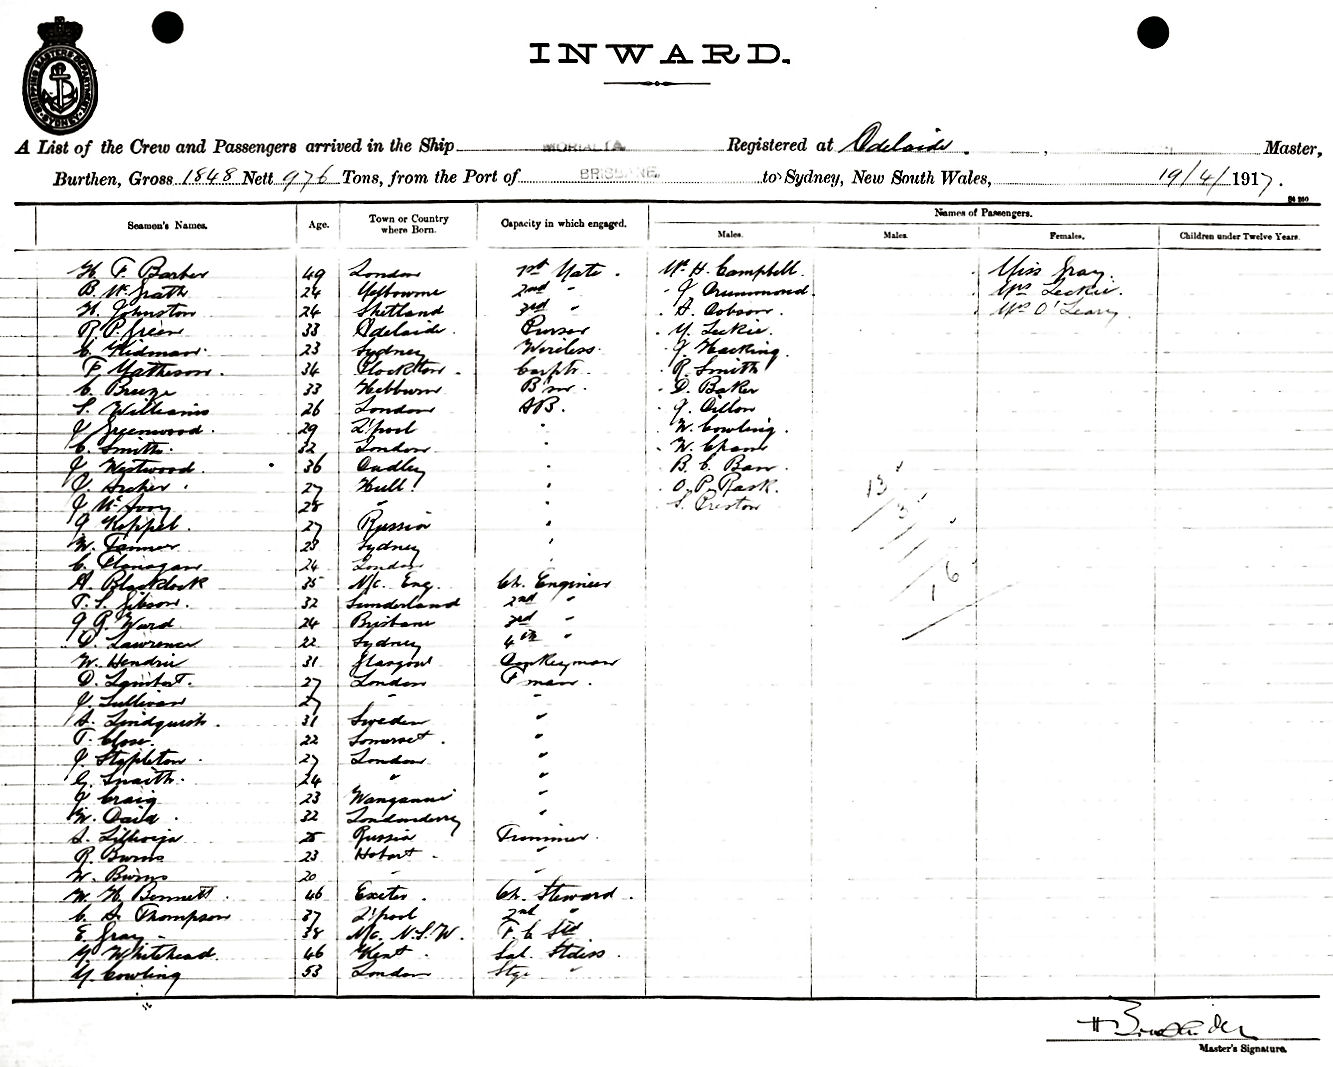 INWARD.
SHIPPING MASTERS DEPARTMENT SYDNEY
A List of the Crew and Passengers arrived in the Ship MORIALTA Registered at Adelaide. , Master,
Burthen, Gross 1848 Nett 976 Tons, from the Port of BRISBANE, to Sydney, New South Wales, 19/4/1917.
Names of Passengers.
Seamen's Names. Age. Town or Country where Born. Capacity in which engaged. Males. Males. Females. Children under Twelve Years.
H. F. Barber 49 London 1st Mate. Mr. H. Campbell. Miss Gray.
B. McGrath 24 Melbourne 2nd " J. Drummond. Mrs Leckie.
H. Johnston 24 Shetland 3rd " A. Dobson. Mrs O'Leary.
R. P. Green 33 Adelaide. Purser M. Leckie.
C. Kidman. 23 Sydney Wireless. J. Hacking.
F. Matheson. 34 Plockton. Carptr. R. Smith
C. Breeze 33 Hebburn B'sn. D. Baker
S. Williams 26 London AB. J. Dillon
J. Greenwood. 29 L'pool " W. Cowling.
C. Smith. 32 London "
J. Westwood. 36 Dudley "
J. Archer. 27 Hull. " O. P. Rask.
28 " " S. Preston
J. Keppel. 27 Russia " 13
W. Tanner 23 Sydney " 3
C. Flanagan 24 London " 16
A. Blacklock 35 N/c. Eng. Ch. Engineer
T. S. Gibson. 32 Sunderland 2nd "
J. R. Ward 24 Brisbane 3rd "
D. Lawrence 22 Sydney 4th "
W. Hendrie 31 Glasgow Donkeyman
D. Lambert. 27 London F'man.
J. Sullivan 27 " "
A. Lindquist. 31 Sweden "
T. Close. 22 Somerset. "
J. Stapleton. 27 London "
G. Snaith. 24 " "
J. Craig 23 Wanganui "
W. David. 32 Londonderry "
Russia Trimmer.
R. Burns 23 Hobart. "
W. Burns 20 " "
W. H. Bennett. 46 Exeter. Ch. Steward.
C. A. Thompson 37 L'pool 2nd "
E. Gray 38 N/c. N.S.W. F. C. Std
M. Whitehead. 46 Kent. Sal. Stdiss.
M. Cowling 53 London Stge "
Master's Signature.